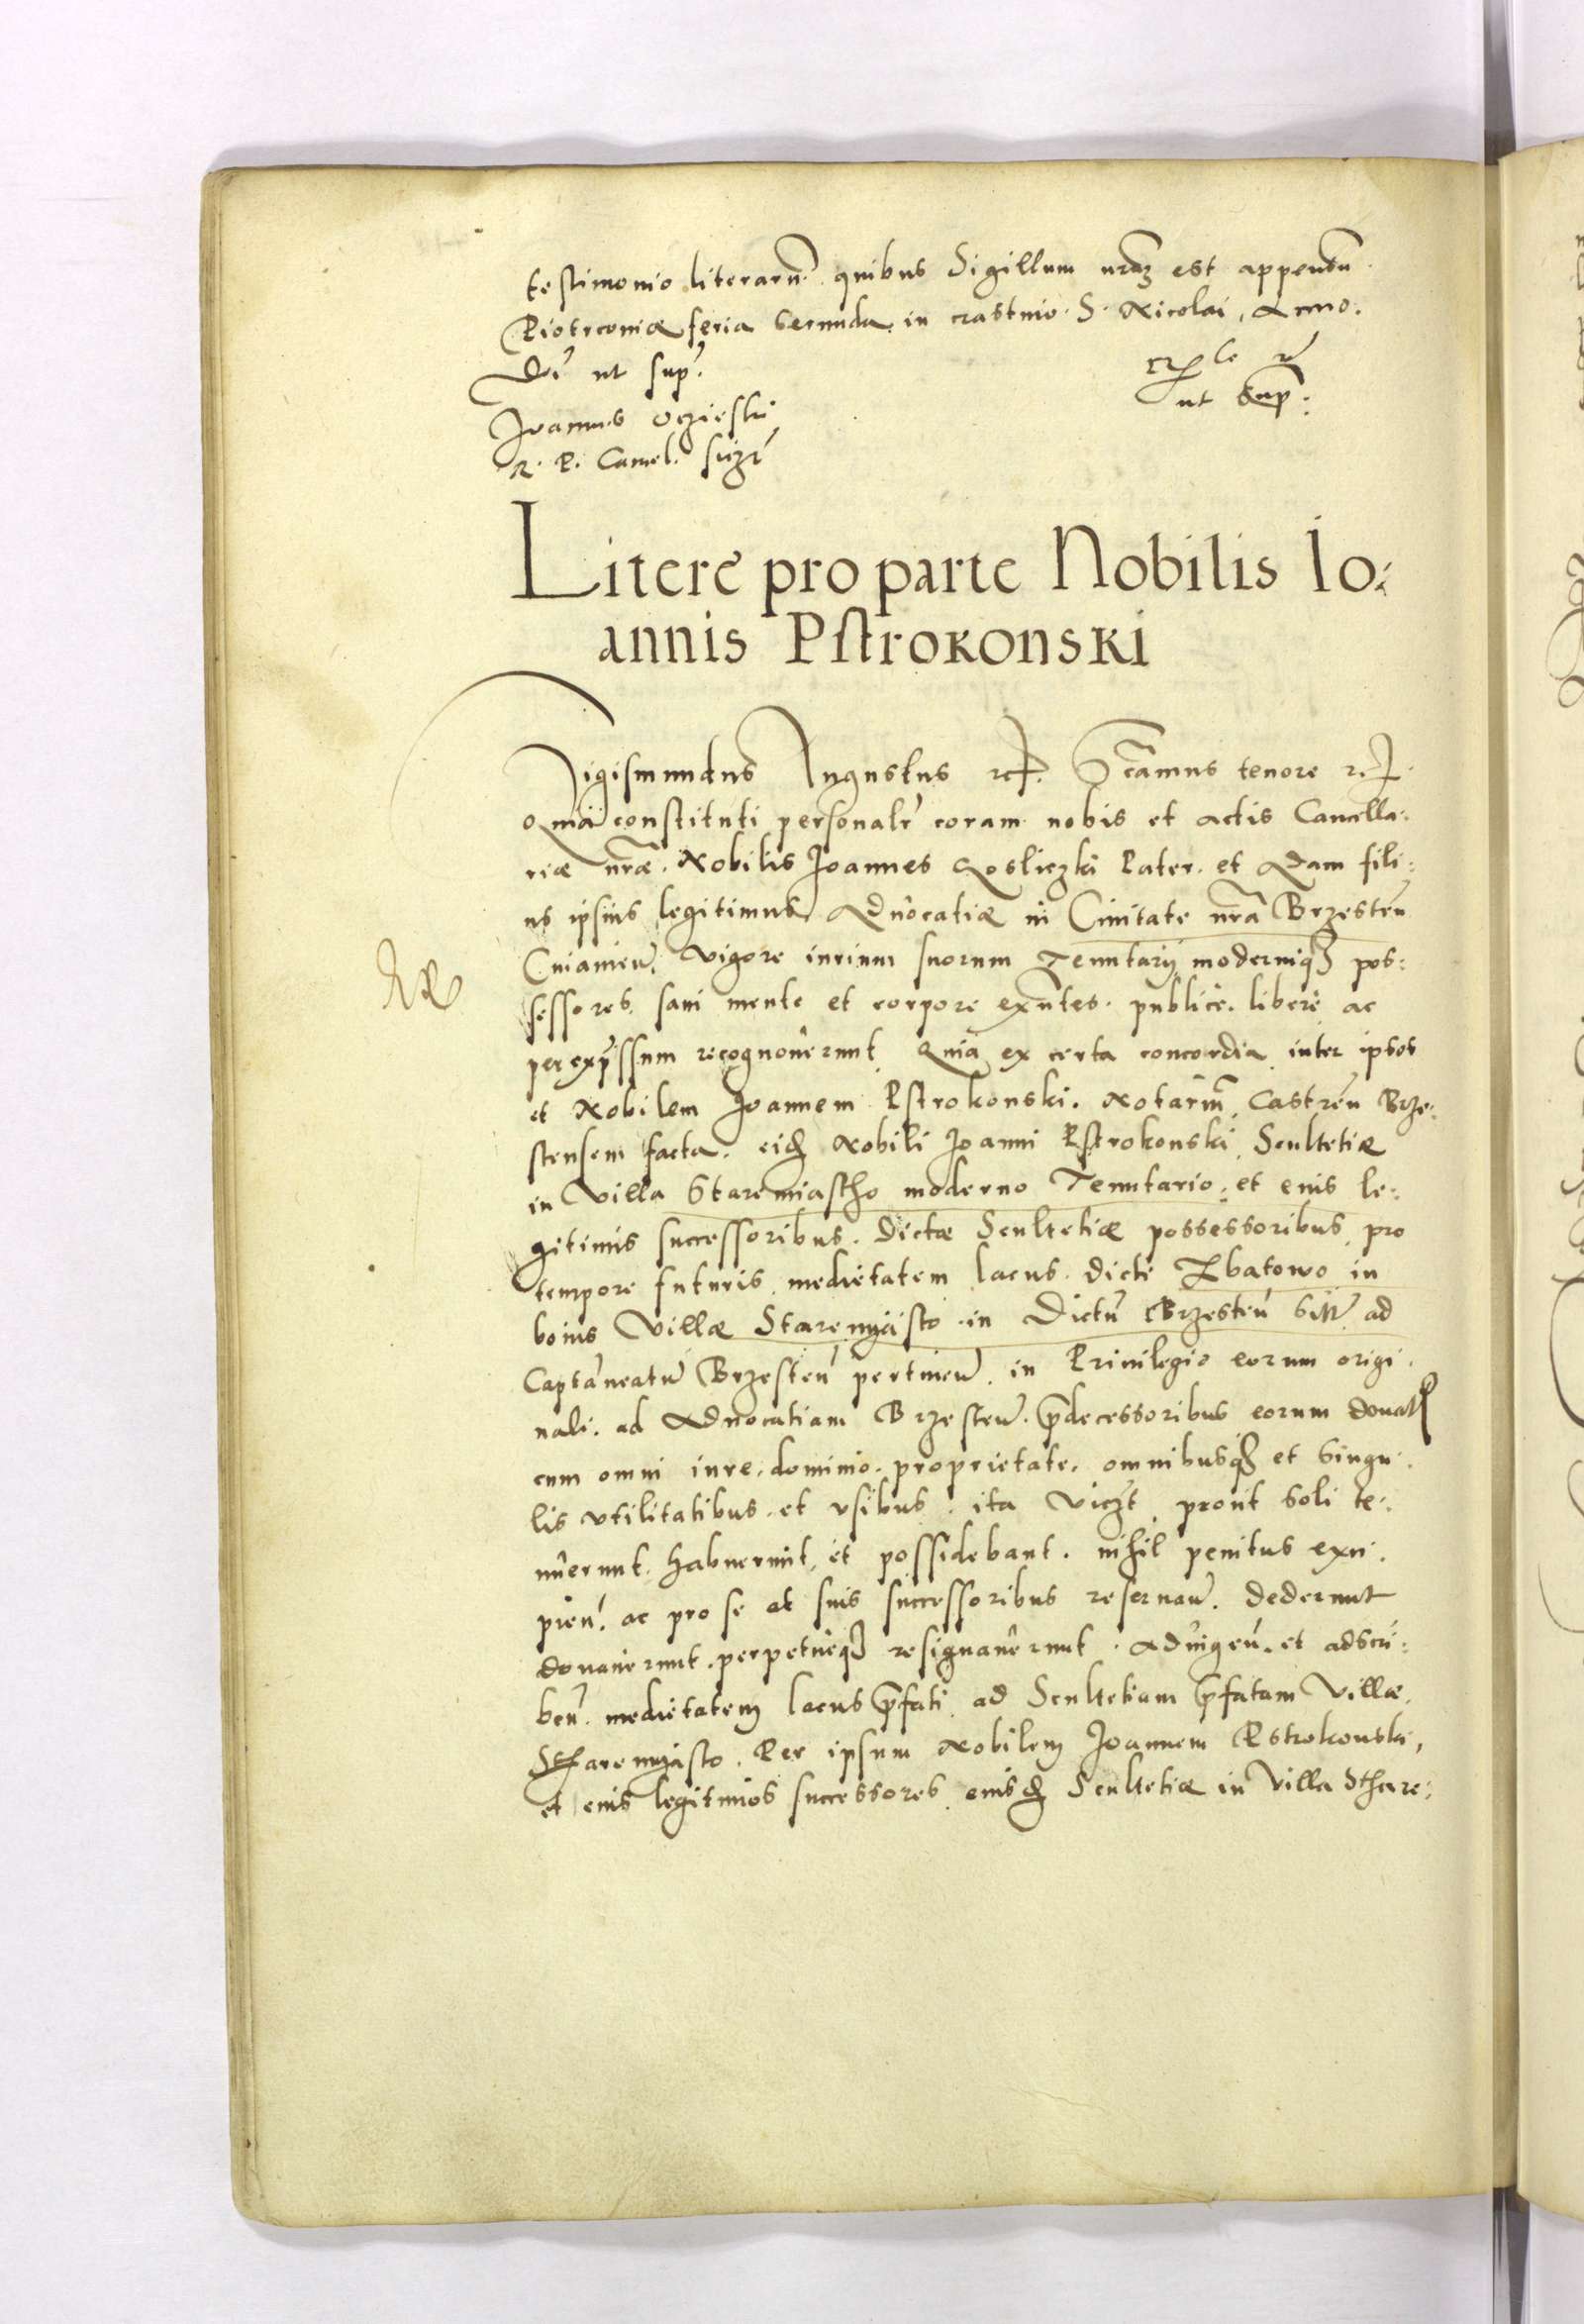 testimonio literarũ. quibus Sigillum nr̃m est appensũ.
Piotrconiæ feria secunda in crastino S. Nicolai, Anno.
Dñi ut sup̃.
ut Sup̃:
Joannes Oczieski
R. P. Cancel. sn̄pt
Litere pro parte Nobilis Io:
annis Pstrokonski
Sigismundus Augustus etc. Sig̃camus tenore etc.
Quia constituti personalr̃ coram nobis et actis Cancella:
riæ nr̃æ. Nobilis Joannes Gosliczki Pater. et Adam fili:
us ipsius legitimus, Aduocatiæ in Ciuitate nr̃a Brzesteñ
Cuiauieñ. vigore iurium suorum Tenutarij moderniq3 pos:
sessores. sani mente et corpore exñtes. publicè. liberè ac
per exp̃ssum recognouerunt Quia ex certa concordia inter ipsos
et Nobilem Joannem Pstrokonski. Notariũ Castreñ Brze:
stensem facta. eid̃ Nobili Joanni Pstrokonski Scultetiæ
in Villa Staremiastho moderno Tenutario: et eius le:
gitimis successoribus. dictæ Scultetiæ possessoribus pro
tempore futuris medietatem lacus dicti Zbatowo in
bonis Villæ Staremiasto in Dictũ Brzesteñ Sitt̃ ad
Captãneatũ Brzesteñ pertineñ. in Priuilegio eorum origi:
nali. ad Aduocatiam Brzesteñ. p̃decessoribus eorum donatã
cum omni iure, dominio. proprietate. omnibusq3 et singu:
lis vtilitatibus et vsibus. ita vicz̃t prout soli te:
nuerunt. habuerunt, et possidebant. nihil penitus exci:
pieñ. ac pro se et suis successoribus reseruañ. dederunt
donauerunt perpetuèq3 resignauerunt. Aduigeñ. et adscri:
beñ. medietatem lacus p̃fati ad Scultetiam p̃fatam Villæ.
Staremiasto. Per ipsum Nobilem Joannem Pstrokonski,
et eius legitimos successores eiusd̃ Scultetiæ in Villa Sthare: